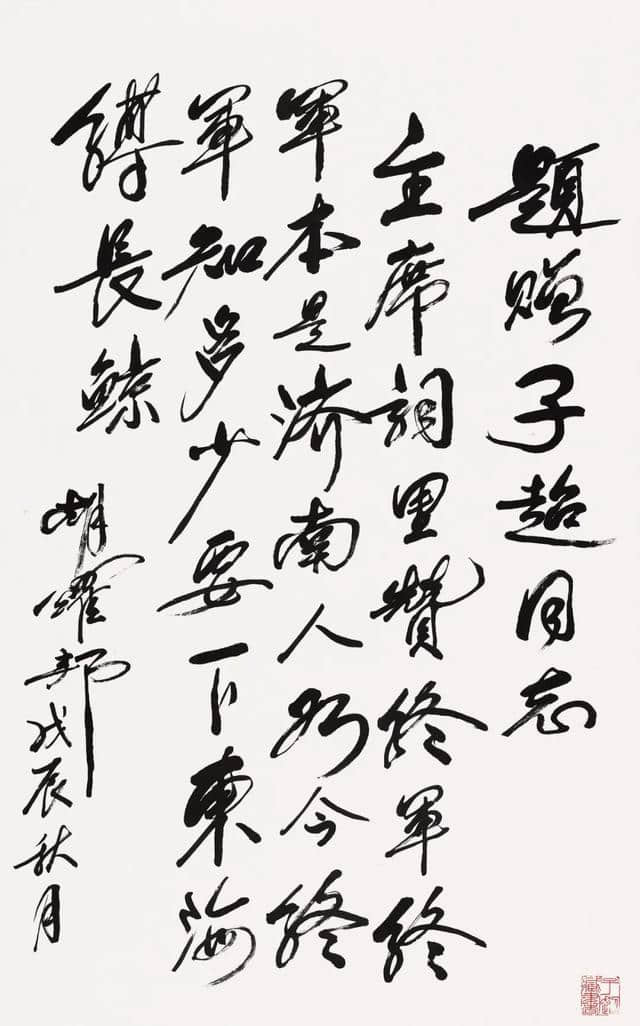 題贈子超同志
主席詞里贊終軍終
軍本是濟南人如今終
軍知多少要下東海
縛長鯨
胡耀邦戊辰秋月